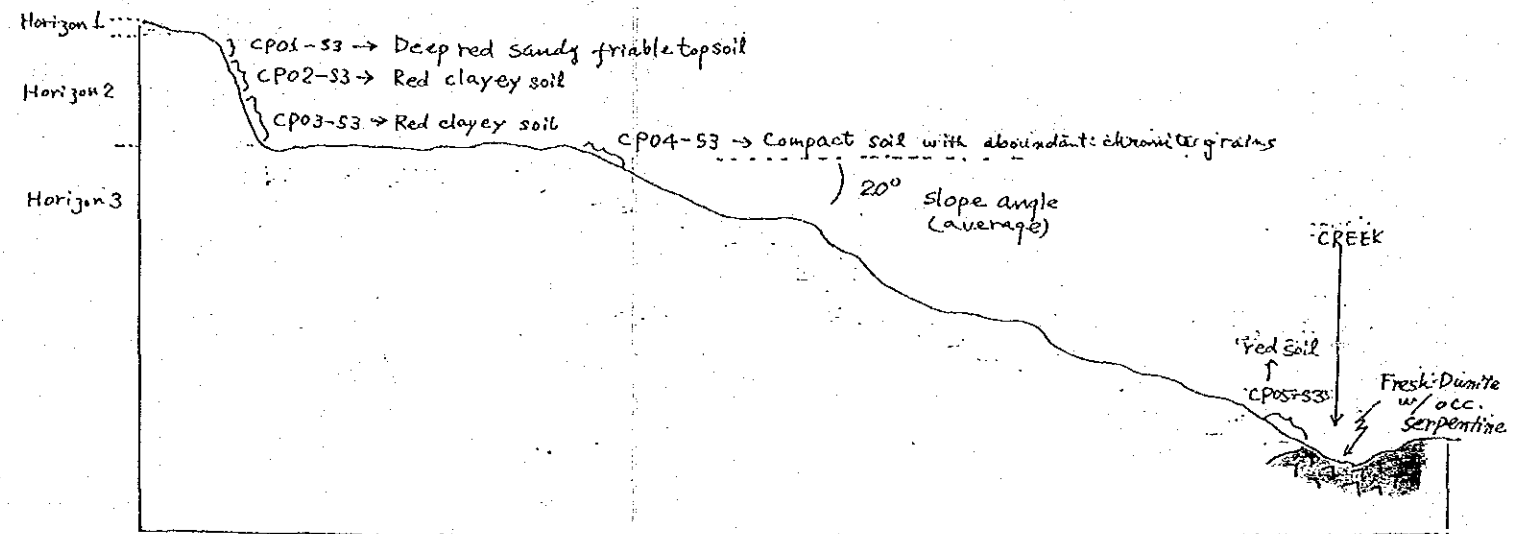 Horizon 1
CP01-S3 → Deep red sandy friable topsoil
CP02-S3 → Red clayey soil
Horizon 2
CP03-S3 → Red clayey soil
CP04-S3 → Compact soil with aboundant chromite grains
Horizon 3
20° slope angle
(average)
CREEK
red soil
↑
CP05-S3
Fresh Dunite
w/ occ.
serpentine